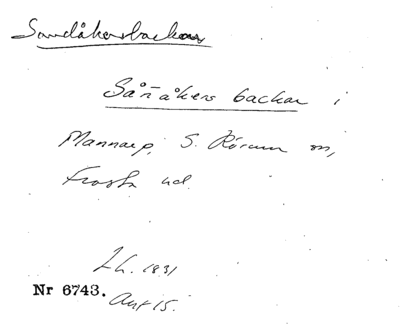 Sandåkersbackar
Sån̄åkers backar i
Mannarp, S. Rörum sn,
Frosta hd.
Lh. 1831
Nr 6743. Akt 15.